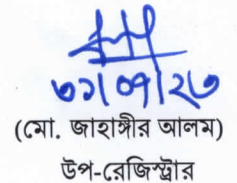 ৩১/০৭/২৩
(মো. জাহাঙ্গীর আলম)
উপ-রেজিস্ট্রার